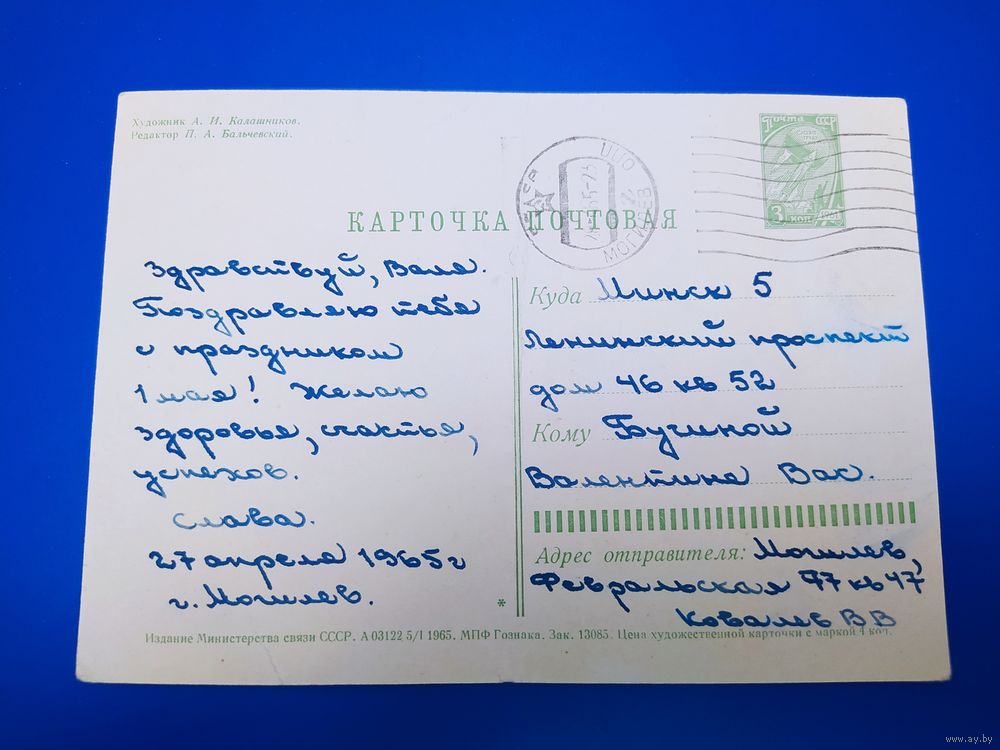 Художник А. И. Калашников.
Редактор П. А. Бальчевский.
Почта СССР
3 коп
1961
СССР
МОГИЛЕВ
КАРТОЧКА ПОЧТОВАЯ
Здравствуй, Валя.
Поздравляю тебя
с праздником
1 мая! Желаю
здоровья, счастья,
успехов.
Слава.
27 апреля 1965 г
г. Могилев.
Куда Минск 5
Ленинский проспект
дом 46 кв 52
Кому Бугиной
Валентине Вас.
Адрес отправителя: Могилев,
Февральская 77 кв 47
Ковалев ВВ
*
Издание Министерства связи СССР. А 03122 5/I 1965. МПФ Гознака. Зак. 13085. Цена художественной карточки с маркой 4 коп.
www.ay.by